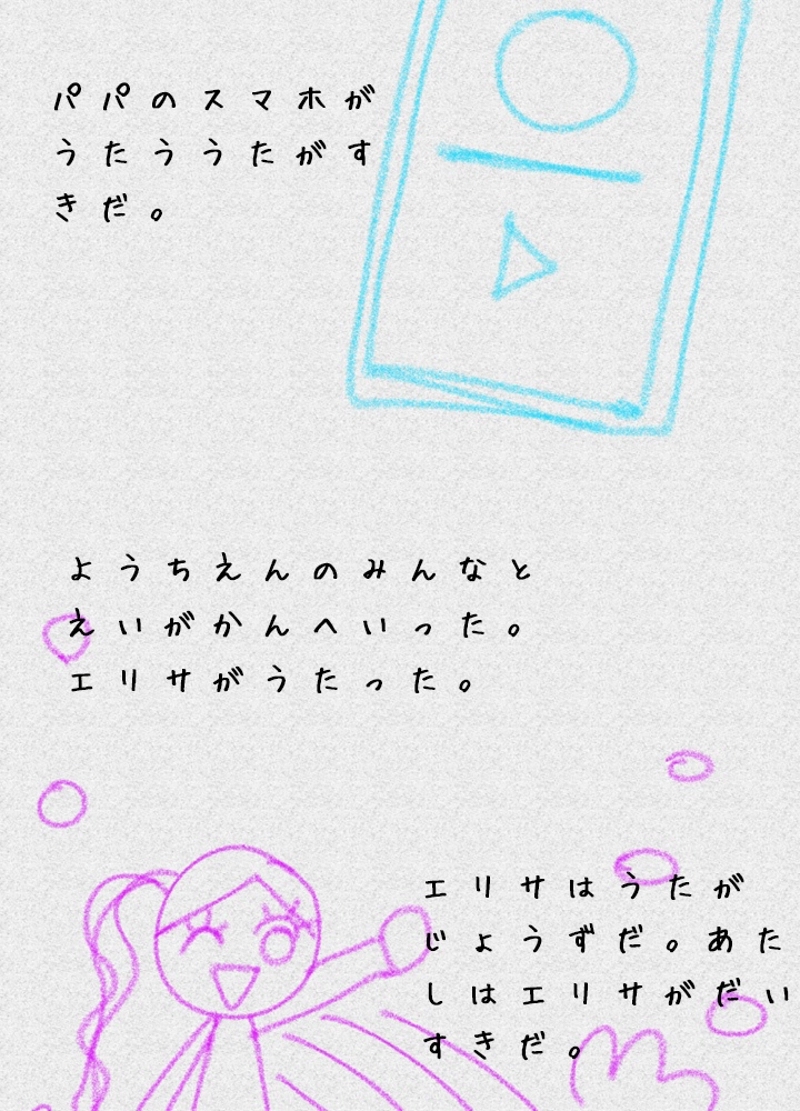 パパのスマホが
うたううたがす
きだ。
ようちえんのみんなと
えいがかんへいった。
エリサがうたった。
エリサはうたが
じょうずだ。あた
しはエリサがだい
すきだ。